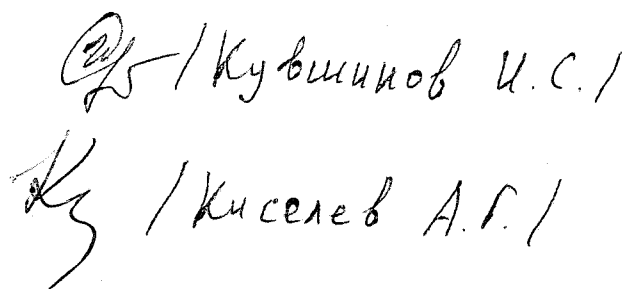 /Кувшинов И.С./
/Киселев А.Г./